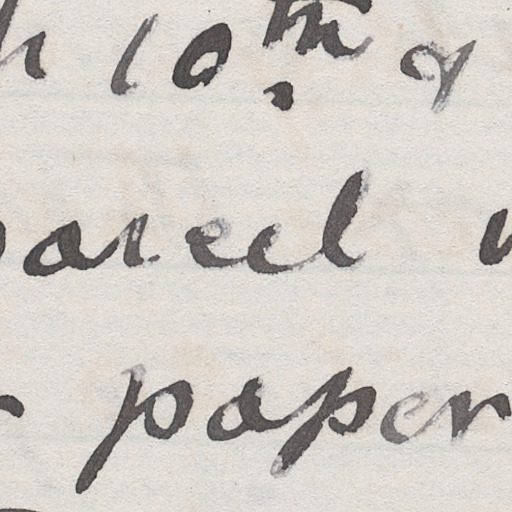 h 10th &
parcel
paper